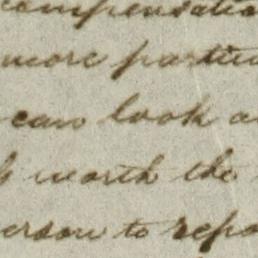 compensatio
more particu
can look a
worth the
erson to repo